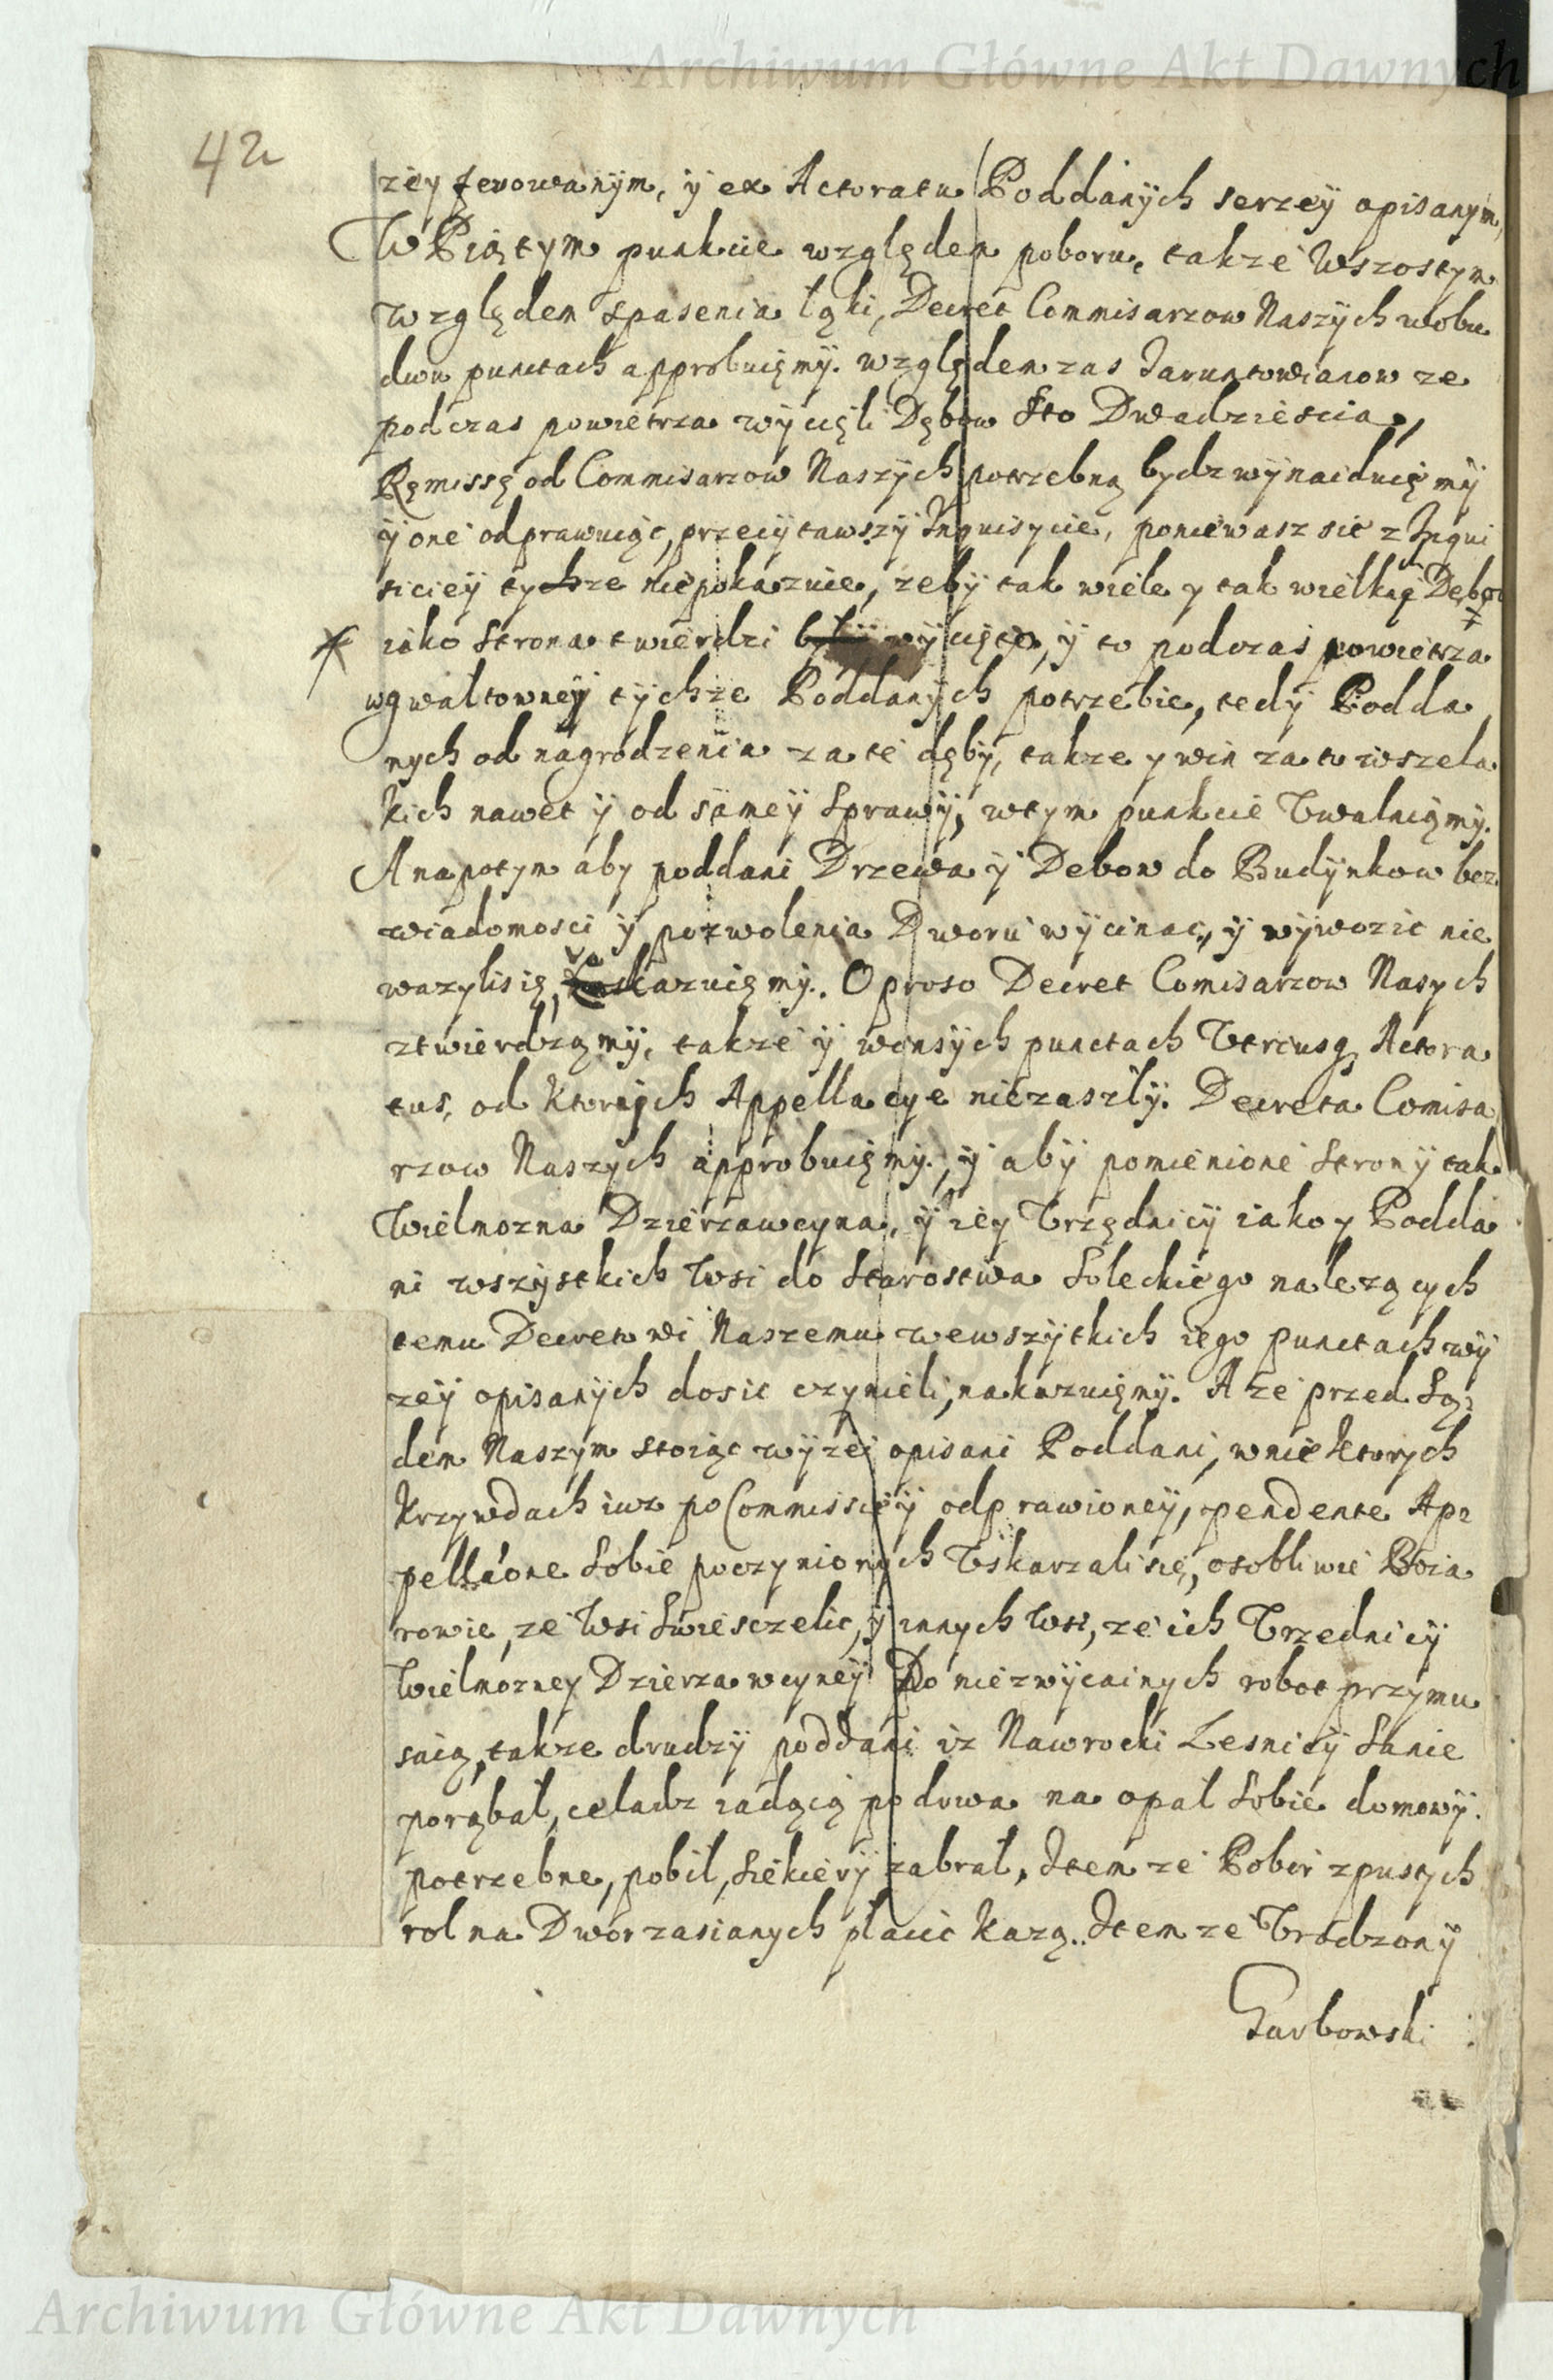 Archiwum Główne Akt Dawnych
42
zey ferowanÿm, ÿ ex Actoratu Poddanÿch serzeÿ opisanÿm,
W Piątym punkcie względem poboru, takze Wszostym
względem spasenia ląki, Decret Commisarzow Naszÿch wobu
dwu punctach approbuięmÿ. względem zas Jaruntowianow ze
podczas powietrza wÿcięli Dębow Sto Dwadziescia,
Remissę od Commisarzow Naszÿch potrzebną bydz wÿnaiduięmÿ
ÿ one odprawuiąc, przeczÿtawszÿ Inquisycie, poniewasz sie z Inqui
siciey tychze niepokazuie, zebÿ tak wiele y tak wielkię Dębow
iako Strona twierdzi bÿlÿ wÿcięte, ÿ to podczas powietrza
wgwaltowneÿ tÿchze Poddanÿch potrzebie, tedÿ Podda
nych od nagrodzenia za te dębÿ, takze y win za to wszela
kich nawet ÿ od sameÿ Sprawÿ, wtym punkcie Uwalniąmÿ.
A napotym aby poddani Drzewa ÿ Debow do Budÿnkow bez
wiadomosci ÿ pozwolenia Dworu wÿcinac, ÿ wÿwozic nie
wazylisię, skazuięmÿ. O proso Decret Comisarzow Nasych
ztwierdzamÿ, takze ÿ winsÿch punctach Utriusq Actora
tus, od ktorÿch Appellacye niezaszlÿ. Decreta Comisa
rzow Naszÿch approbuięmÿ, ÿ abÿ pomienione Stronÿ tak
Wielmozna Dzierzawcyna, ÿ iey Urzędnicÿ iako y Podda
ni wszÿstkich Wsi do Starostwa Soleckiego nalezących
temu Decretowi Naszemu wewszÿtkich iego punctach wÿ
zeÿ opisanÿch dosic czynieli, nakazuięmÿ. A ze przed Są
dem Naszÿm stoiąc wÿzeÿ opisani Poddani, wniektorych
krzywdach iuz po Commissieÿ odprawioneÿ, pendente Ap
pellaõne Sobie poczynionÿch Uskarzalisię, osobliwie Boia
rowie, ze Wsi Swiesczelic, ÿ innych Wsi, ze ich Urzednicÿ
Wielmozney Dzierzawcyneÿ Do niezwÿcainych robot przymu
saią, takze drudzÿ poddani iz Nawrocki Lesnicÿ Sanie
porąbal, celadz iadącą po drwa na opal Sobie domowÿ.
potrzebne, pobil, Siekierÿ zabral, Item ze Pobor zpustÿch
rol na Dwor zasianych placic kazą. Item ze Urodzonÿ
Garbowski
Archiwum Główne Akt Dawnych